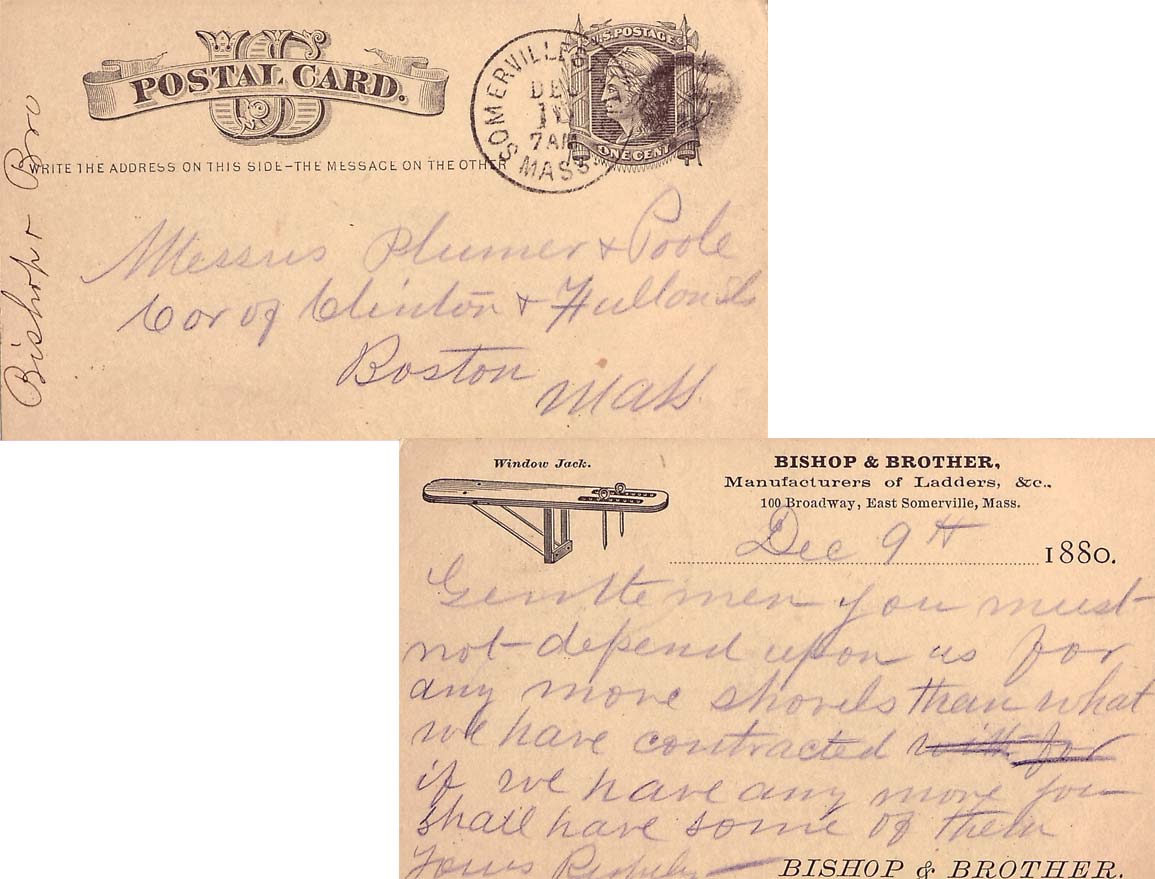 US
POSTAL CARD.
WRITE THE ADDRESS ON THIS SIDE-THE MESSAGE ON THE OTHER
SOMERVILLE
DEC
10
7AM
MASS.
U.S. POSTAGE
ONE CENT
Bishop & Bro
Messrs Plumer & Poole
Cor of Clinton & Fulton Sts
Boston
Mass
Window Jack.
BISHOP & BROTHER,
Manufacturers of Ladders, &c.,
100 Broadway, East Somerville, Mass.
Dec 9th 1880.
Gentlemen you must
not depend upon us for
any more shovels than what
we have contracted with for
if we have any more you
shall have some of them
Yours
BISHOP & BROTHER.